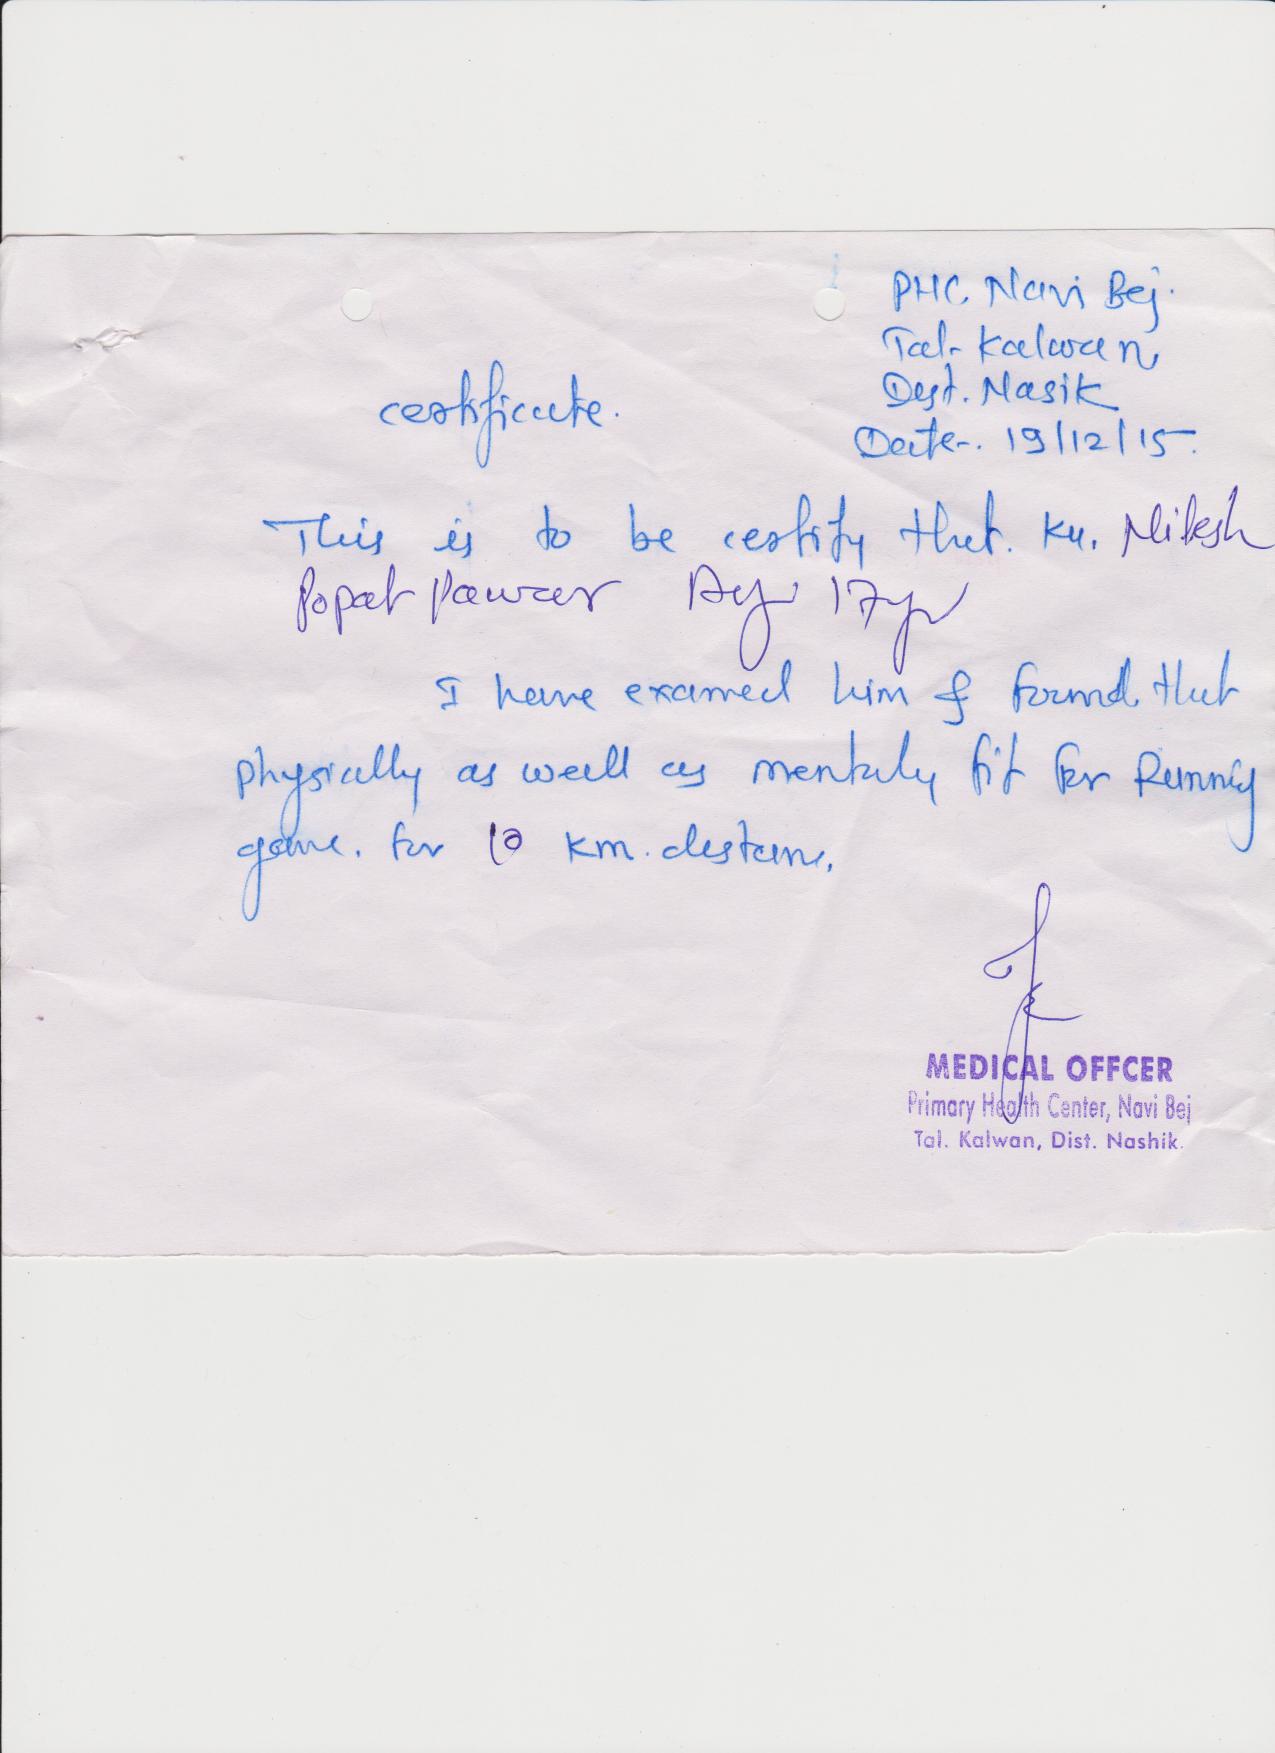 PHC. Navi Bej.
Tal- Kalwan
Dist. Nasik
Date-. 19/12/15.
certificate.
This is to be certify that. Ku. Nilesh
Popat Pawar Age 17yr
I have examed him & found that
physically as well as mentaly fit for Running
game. for 10 km. distanc.
MEDICAL OFFCER
Primary Health Center, Navi Bej
Tal. Kalwan, Dist. Nashik.